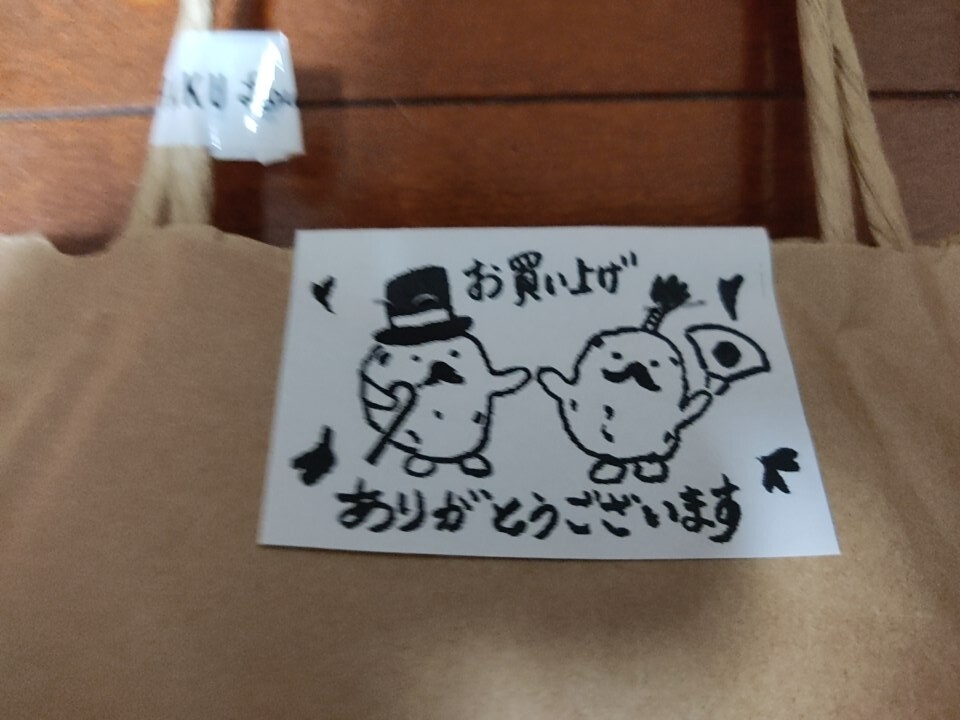 KU
お買い上げ
ありがとうございます